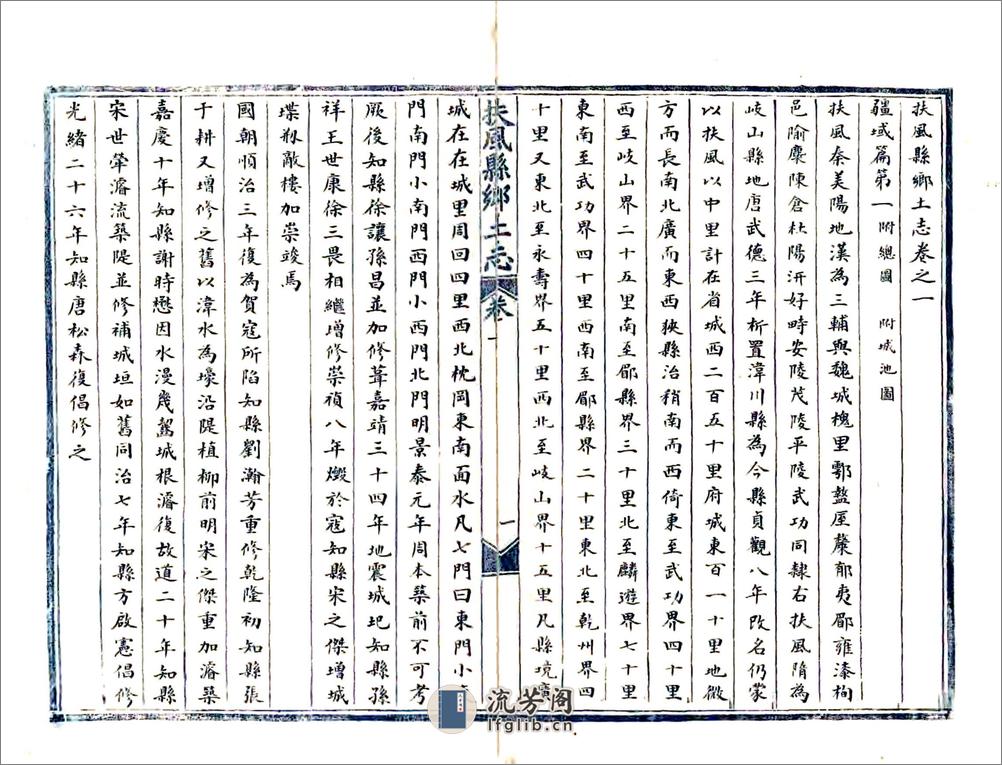 扶風縣鄉土志卷之一
疆域篇第一 附總圖 附城池圖
扶風秦美陽地漢為三輔與魏城槐里鄠盩厔斄郁夷郿雍漆栒
邑隃麋陳倉杜陽汧好畤安陵茂陵平陵武功同隸右扶風隋為
岐山縣地唐武德三年析置湋川縣為今縣貞觀八年改名仍蒙
以扶風以中里計在省城西二百五十里府城東百一十里地微
方而長南北廣而東西狹縣治稍南而西倚東至武功界四十里
西至岐山界二十五里南至郿縣界三十里北至麟遊界七十里
東南至武功界四十里西南至郿縣界二十里東北至乾州界四
十里又東北至永壽界五十里西北至岐山界十五里凡縣境廣
扶風縣鄉土志 卷一 一
城在在城里周回四里西北枕岡東南面水凡七門曰東門小
門南門小南門西門小西門北門明景泰元年周本築前不可考
厥後知縣徐讓孫昌並加修葺嘉靖三十四年地震城圮知縣孫
祥王世康徐三畏相繼增修崇禎八年燬於寇知縣宋之傑增城
堞殺敵樓加崇竣焉
國朝順治三年復為賀寇所陷知縣劉瀚芳重修乾隆初知縣張
于耕又增修之舊以湋水為壕沿隄植柳前明宋之傑重加濬築
嘉慶十年知縣謝時懋因水漫幾齧城根濬復故道二十年知縣
宋世犖濬流築隄並修補城垣如舊同治七年知縣方啟憲倡修
光緒二十六年知縣唐松森復倡修之
流芳阁
lfglib.cn